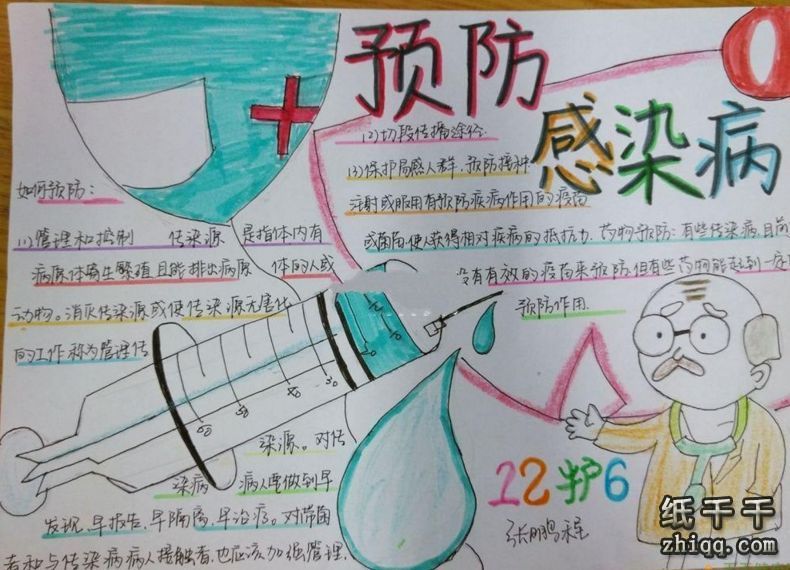 预防
感染病
如何预防:
(1)管理和控制 传染源 是指体内有
病原体寄生繁殖且能排出病原 体的人或
动物。消灭传染源或使传染源无害化
的工作称为管理传
染源。对传
染病 病人要做到早
发现、早报告、早隔离、早治疗。对带菌
者和与传染病病人接触者,也应该加强管理.
(2)切段传播途径.
(3)保护易感人群.预防接种
注射或服用有预防疾病作用的疫苗
或菌苗使人获得相对疾病的抵抗力.药物预防:有些传染病,目前
没有有效的疫苗来预防,但有些药物能起到一定
预防作用.
50
40
30
20
10
12护6
张鹏程
纸干干
zhiqq.com